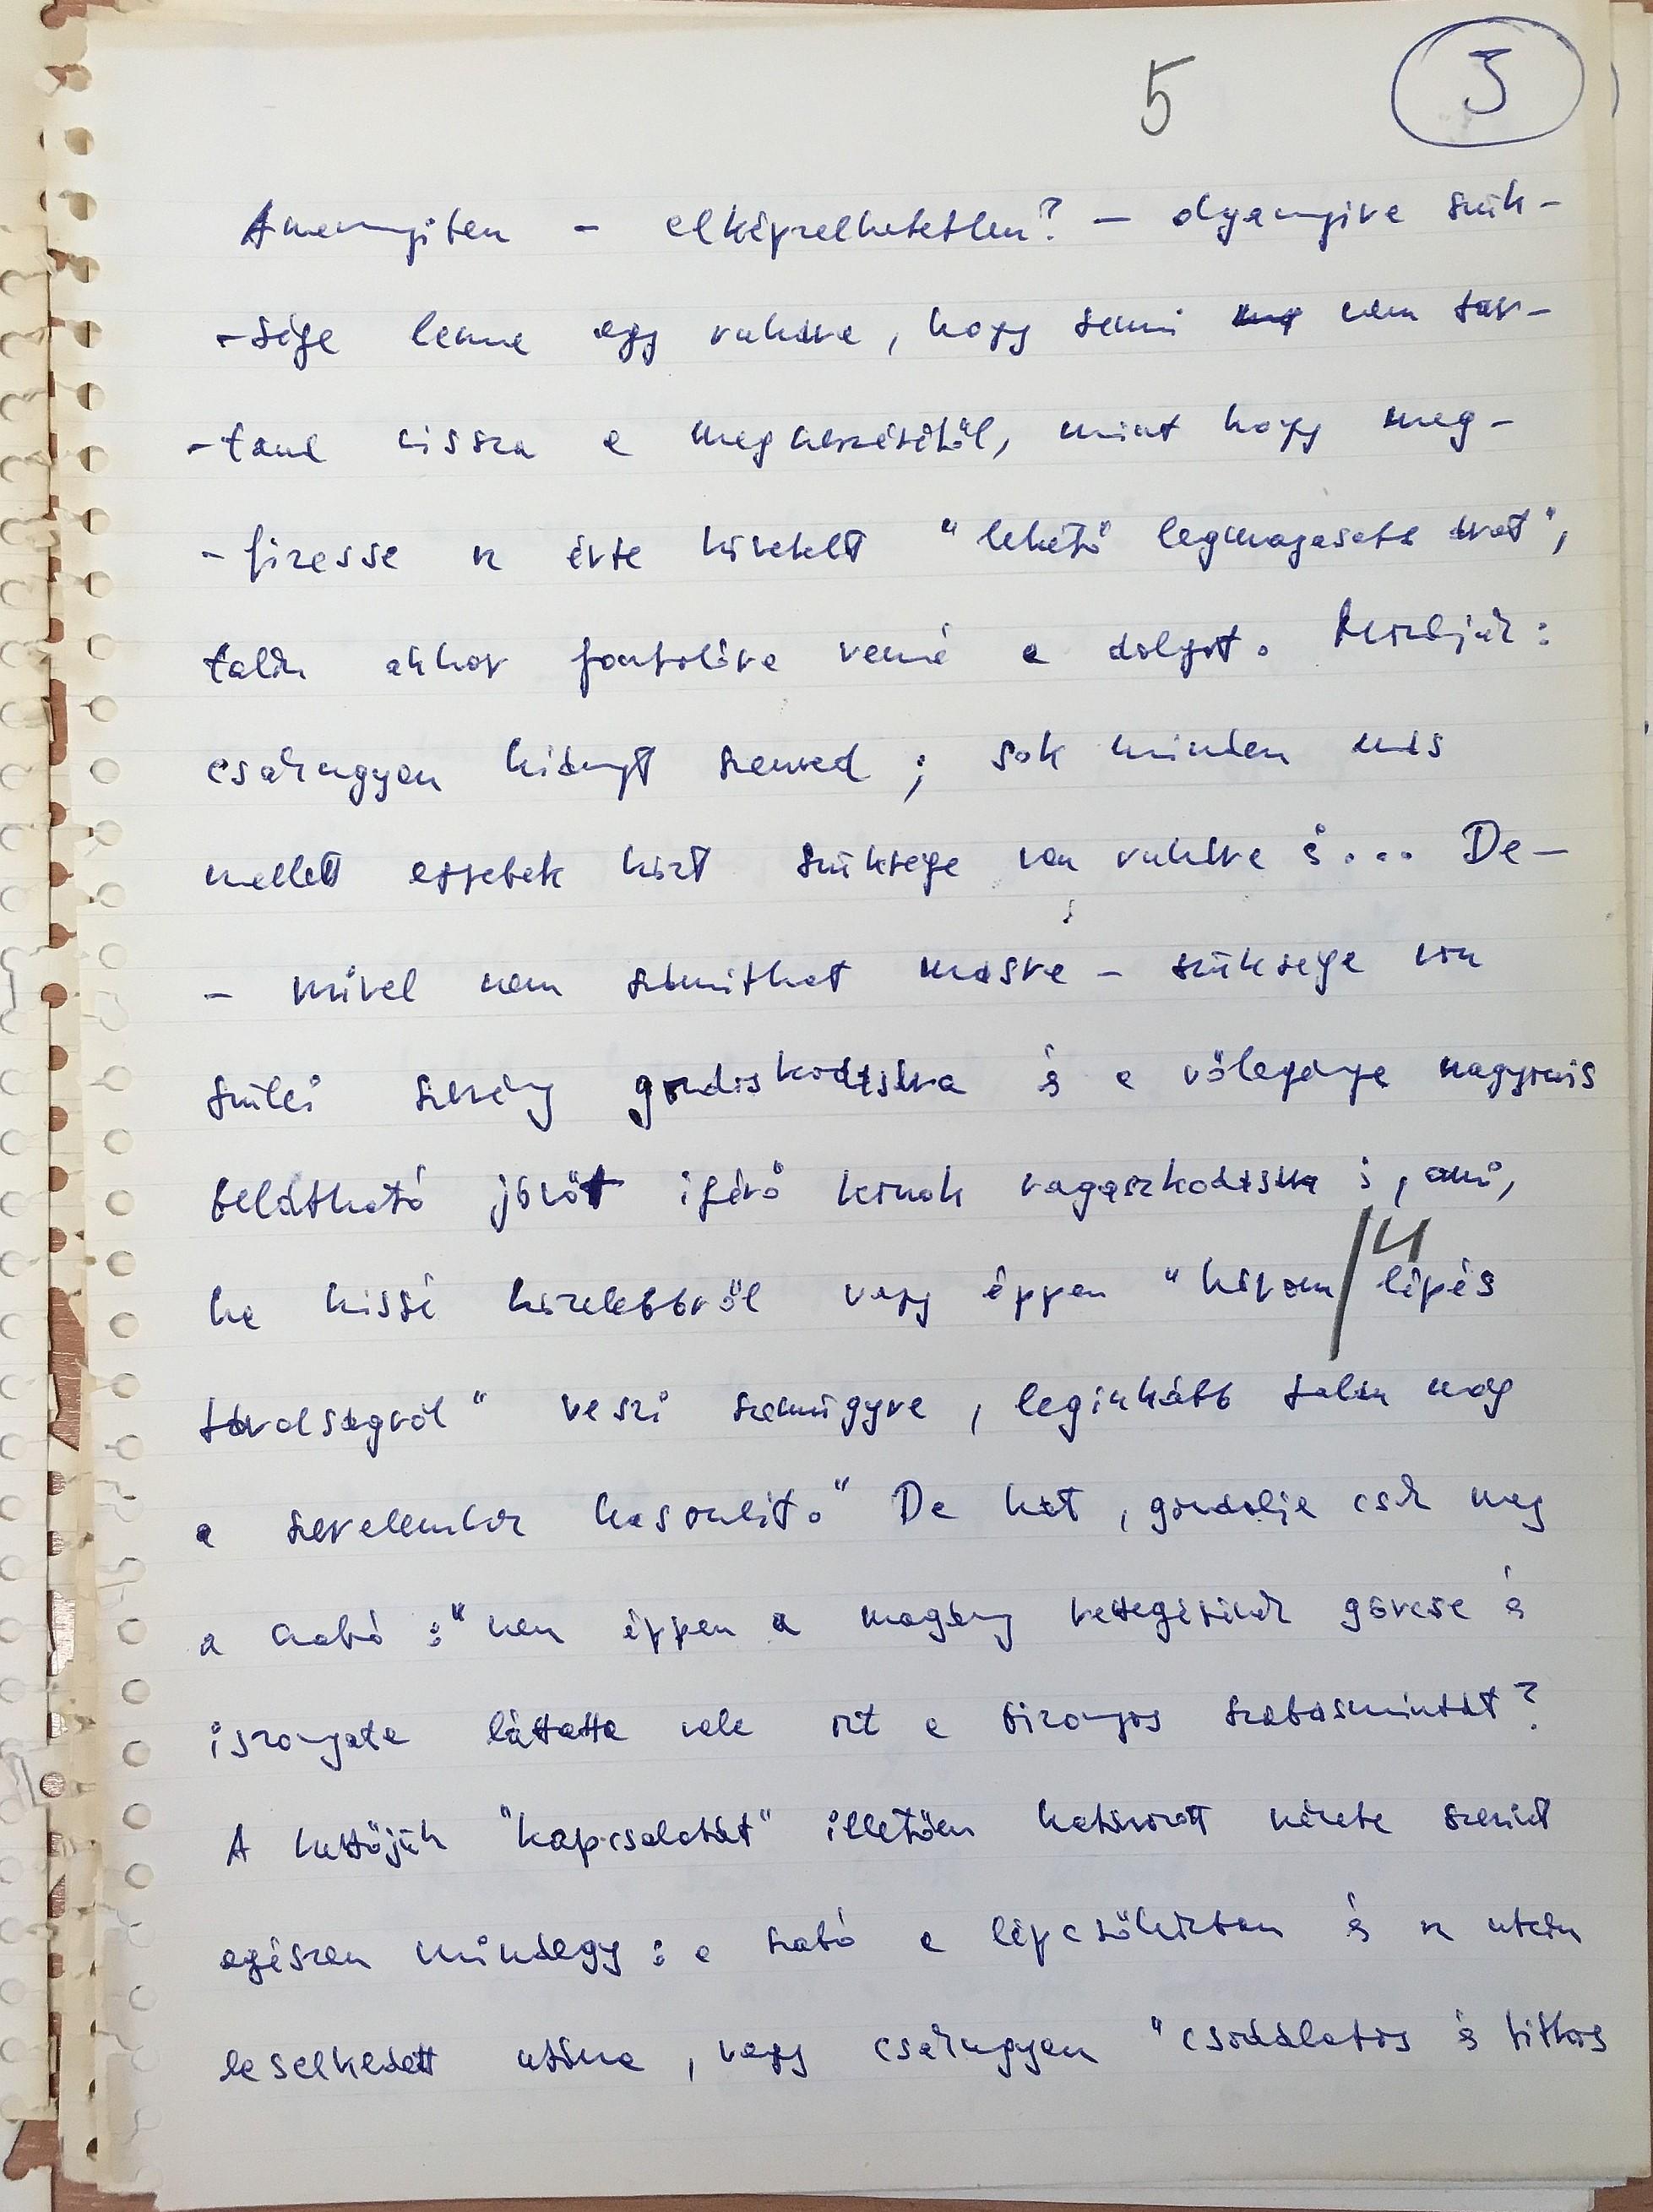 5 3
Amennyiben – elképzelhetetlen? – olyannyira szük-
-sége lenne egy ruhára, hogy semmi nem tar-
-taná vissza a megszerzésétől, mint hogy meg-
-fizesse az érte követelt "lehető legmagasabb árat",
talán akkor fontolóra venné a dolgot. Mondjuk:
csakugyan hiányt szenved; sok minden más
mellett egyebek közt szüksége van ruhára is... De–
– mivel nem számíthat másra – szüksége van
szülei szerény gondoskodására és a vőlegénye nagyon is
belátható jövőt igérő karának ragaszkodására is, ami,
ha kissé közelebbről vagy éppen "három / 4 lépés
távolságról" veszi szemügyre, leginkább talán még
a szerelemhez hasonlít." De hát, gondolja csak meg
a szabó: "nem éppen a magány rettegésének görcse és
iszonyata láttatta vele ezt a bizonyos szabásmintát?
A kettőjük "kapcsolatát" illetően határozott nézete szerint
egészen mindegy: a szabó a lépcsőházban és az utcán
leselkedett utána, vagy csakugyan "csodálatos és titkos